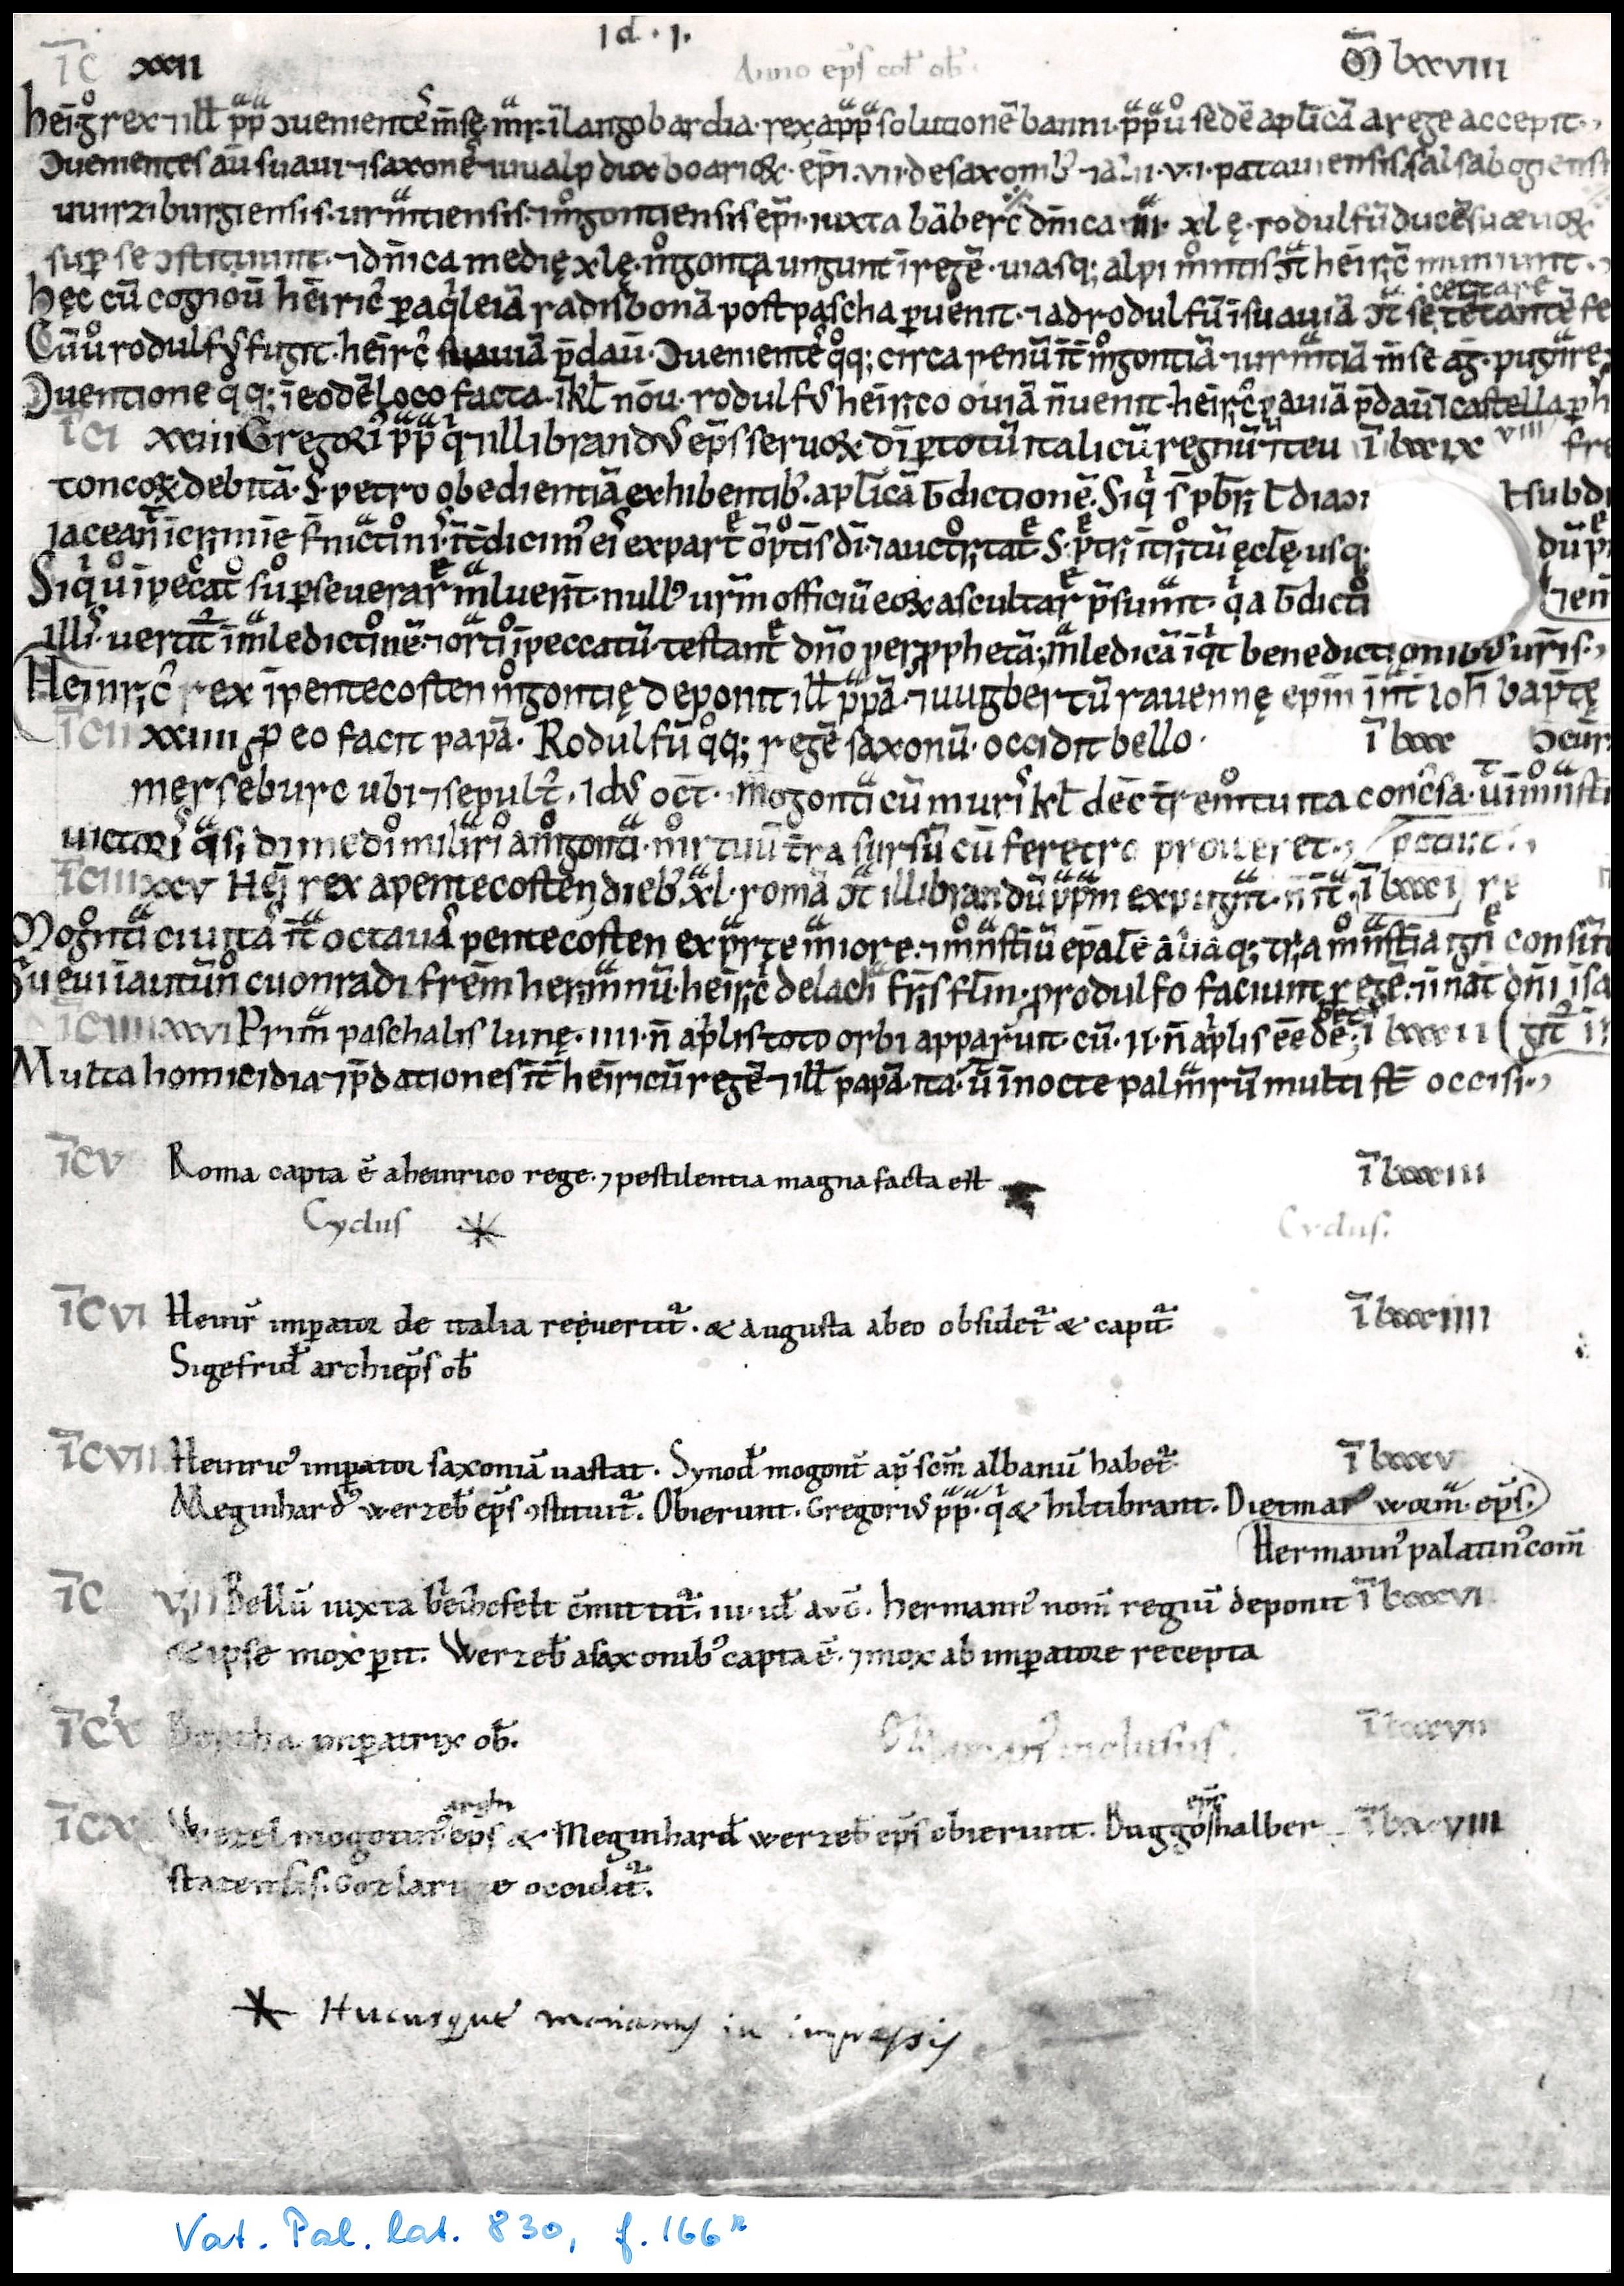 Id · I ·
ĪC XXII Anno eps̄ col ob̄ · M̄ lxxviii
heīgͦ rex ⁊ illł pᵃpᵃ ↄuenientes m̄sę mᵃr · ī langobardia · rex a pᵃpᵃ solutionē banni · pᵃpᵃ uͦ sedē aplicā a rege accepit ·
Ↄuenientes aū suaui ⁊ saxones ⁊ uualp dux boarioꝝ · ep̄i · vii · de saxonib' ⁊ alii · v · i · patauiensis · salsabogiensis
uuirziburgiensis · urmᵃtiensis · mͦgontiensis ep̄i · iuxta bāberc dn̄ica · iii · xlę · rodulfū ducē suæuoꝝ
suꝑ se ↄstituunt · ⁊ dn̄ica medię xlę · mͦgontia ungunt ī regē · uiasq; alpi mͦntis ↄtᵃ heīrc̄ muniunt ·
certare
hęc cū cognoū heīric̄ ꝑ aqͥleiā radisbonā post pascha ꝑuenit · ⁊ ad rodulfū ī suauiā ↄtᵃ se tētantē fe
Cū uͦ rodulf' fugit · heīrc̄ suauiā p̄daū · Ↄuenientes qͦq; circa renū īt mͦgontiā ⁊ urmᵃtiā m̄se ag̃ · pugnᵃre
Ↄuentione qͦq; ī eodē loco facta · ī kł nōu · rodulf' heīrco ouiā n̄ uenit · heīrc̄ suauiā p̄daū ⁊ castella ꝑ h
ĪCI XXIII Gregori' pᵃpᵃ qͥ ⁊ illibrand' eps̄ seruoꝝ dī ꝑ totū italicū regnū ⁊ teu M̄ lxxix viii fre
tonicoꝝ debitā · S̄ petro obedientiā exhibentib' · aplicā b̄dictionē · Siqͥ s̄ pb̄ri ł diaↄi ł subdi
iaceant ī crimīe fornicᵃtioni' · īt̄dicim' eis ex parte om̄ptis dī ⁊ auctorᵗtate S · petri ītroitū ęclę · usq; dū pe
Siqͥ uͦ ī peccatͦ suͦ ꝑseuerare mᵃluerīt · null' ur̄m officiū eoꝝ ascultare p̄sumᵃt · qͥa b̄dictio
illi' uertit̄ ī mᵃledictionē · ⁊ orᵃtio ī peccatū · testante dn̄o per pphetā; mᵃledicā īqͥt benedictionib' ur̄is ·
Heinric̄ rex ī pentecosten mͦgontię deponit illł pᵃpā · ⁊ uugbertū rauennę epm̄ īnt̄ ioh̄ bapt̄ę
ĪCII XXIIII ꝓ eo facit papā · Rodulfū qͦq; regē saxonū · occidit bello · M̄ lxxx
merseburc ubi ⁊ sepult' · id' oct̄ · Mogontia cū muri' kł dec̄ t̄remͦtu ita concussa · ut ī mͦnastᵉ
uictori' qᵃsi dimedͦ miliᵃriͦ a mͦgontiᵃ · mͦrtuū t̄ra sursū cū feretro proueret ·
ĪCIII XXV Heī rex a pentecosten dieb' xl · romā ↄtᵃ illibrandū pᵃpᵃm expugnᵃt · n̄ īt̄ᵃ · M̄ lxxxi
Mogontia ciuitas īt̄ octauas pentecosten ex pᵃrte maiore · ⁊ mͦnastᵉiū epāle aliaq; tria mͦnastᵉia igni consūti
Sueui ī autūno cuonradi frem̄ hermᵃnnū · heīrc̄ de lach fr̄is flīm · ꝓ rodulfo faciunt regē · ī nᵃt dn̄i ī sa
ĪCIIII XXVI Primᵃ paschalis lunę · iiii · n̄ aplis toto orbi apparuit · cū · ii · n̄ aplis eē deb; M̄ lxxxii
Multa homicidia ⁊ p̄dationes īt̄ heīricū regē ⁊ illł papā · ita ut ī nocte palmᵃrū multi st̄ occisi ·
ĪCV Roma capta ē a heinrico rege · ⁊ pestilentia magna facta est M̄ lxxxiii
Cyclus * Cyclus.
ĪCVI Heinr̄ imꝑator de italia reuertit̃ · & augusta ab eo obsidet̃ & capit̃ M̄ lxxxiiii
Sigefrid' archieps̄ ob̄
ĪCVII Heinric' imꝑator saxoniā uastat · Synod' mogont̄ ap̄ scm̄ albanū habet̃ M̄ lxxxv
Meginhard' werzeb̄ eps̄ ↄstituit̃ · Obierunt · Gregori' pᵃpᵃ · qͥ & hiltibrant · Dietmar worm̄ · eps̄ ·
Hermann' palatin' com̄
ĪC VIII Bellū iuxta blechefelt c̄mittit̃ · iii · id' avḡ · hermann' nom̄ regiū deponit M̄ lxxxvi
& ipse mox ꝑit · Werzeb̄ a saxonib' capta ē · ⁊ mox ab imꝑatore recepta
ĪCIX Bertha imꝑatrix ob̄ · inclusus · M̄ lxxxvii
archi epc̄
ĪCX Wezel mogontin' eps̄ & Meginhard' werzeb̄ eps̄ obierunt · Buggo halber M̄ lxxxviii
statensis · Goslarie occidit̃ ·
* Hucusque in impressis
Vat. Pal. lat. 830, f. 166ʳ